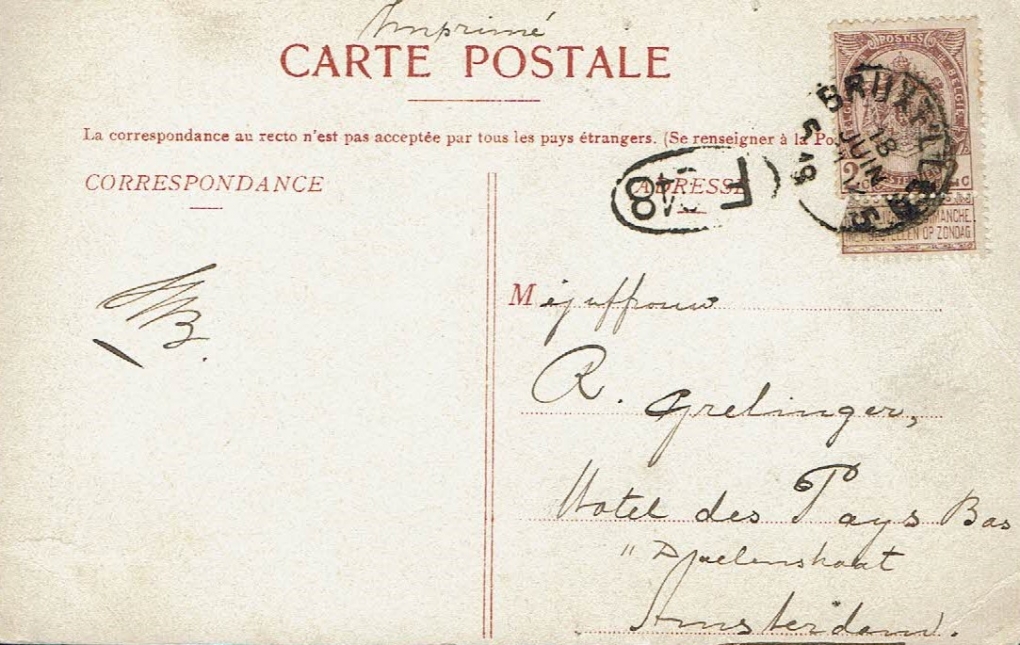 Imprimé
CARTE POSTALE
La correspondance au recto n'est pas acceptée par tous les pays étrangers. (Se renseigner à la Po
CORRESPONDANCE
ADRESSE
POSTES
2
DIMANCHE.
BESTELLEN OP ZONDAG
BRUXELLES
18
JUIN
5 19
F
48
HB.
Mejuffrouw
R. Grelinger,
Hotel des Pays Bas
Amsterdam.